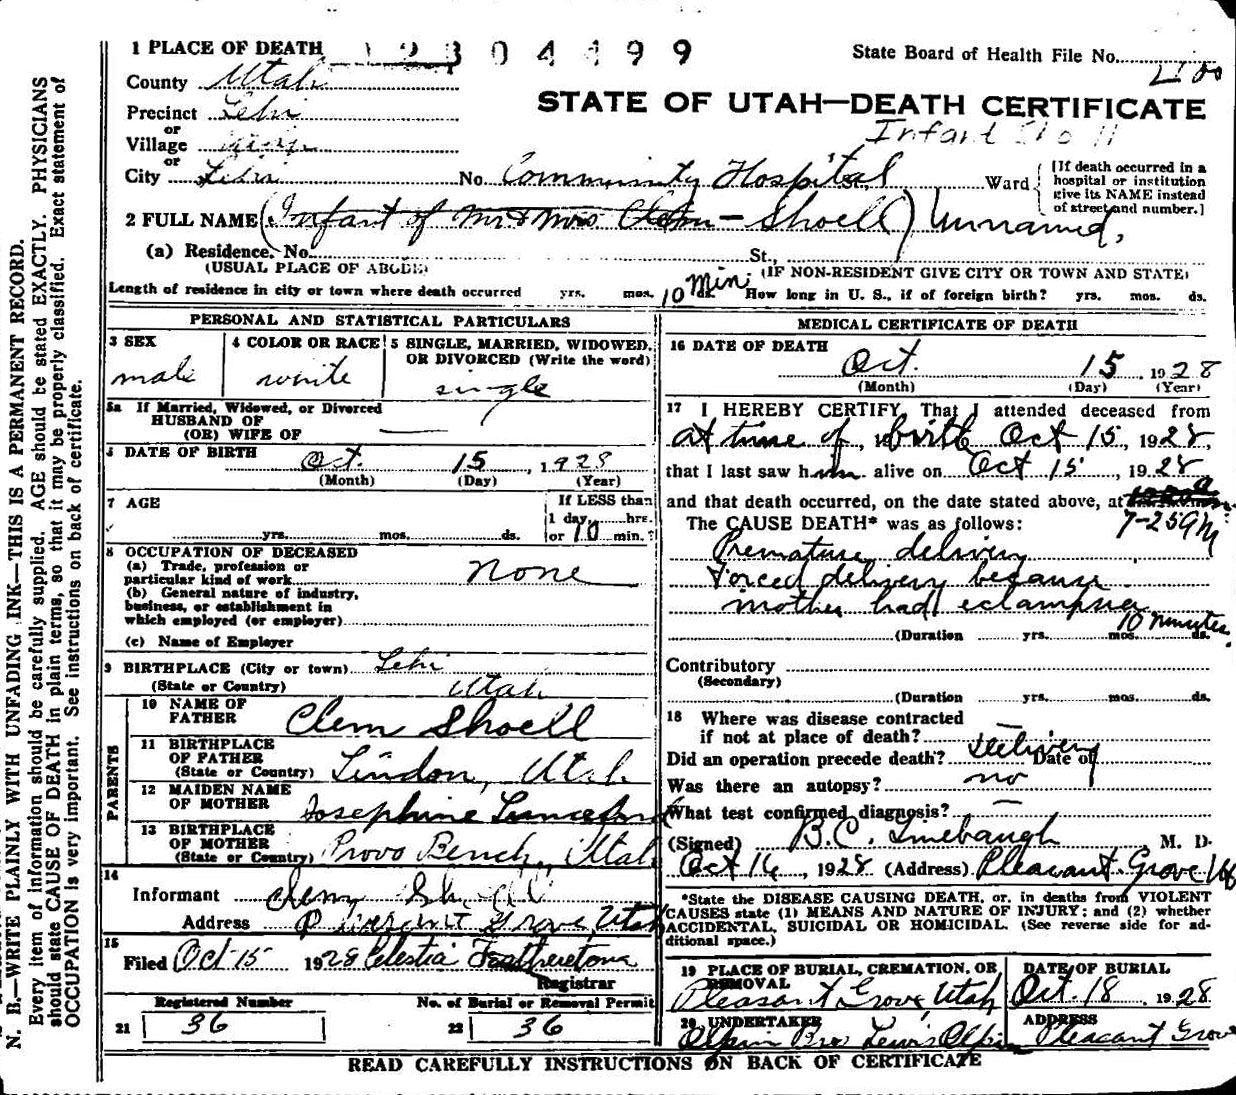 1 PLACE OF DEATH
State Board of Health File No.
County Utah
STATE OF UTAH—DEATH CERTIFICATE
Precinct Lehi
or
Village
Infant Shoell
or
City Lehi No. Community Hospital Ward
[If death occurred in a hospital or institution give its NAME instead of street and number.]
2 FULL NAME (Infant of Mr & Mrs Clem - Shoell) Unnamed,
(a) Residence. No. St.,
(USUAL PLACE OF ABODE) (IF NON-RESIDENT GIVE CITY OR TOWN AND STATE)
Length of residence in city or town where death occurred yrs. mos. 10 Min. ds. How long in U. S., if of foreign birth? yrs. mos. ds.
PERSONAL AND STATISTICAL PARTICULARS
3 SEX
male
4 COLOR OR RACE
white
5 SINGLE, MARRIED, WIDOWED,
OR DIVORCED (Write the word)
single
5a If Married, Widowed, or Divorced
HUSBAND OF
(OR) WIFE OF
6 DATE OF BIRTH Oct. 15, 1928
(Month) (Day) (Year)
7 AGE
yrs. mos. ds.
If LESS than
1 day, hrs.
or 10 min.?
8 OCCUPATION OF DECEASED
(a) Trade, profession or
particular kind of work none
(b) General nature of industry,
business, or establishment in
which employed (or employer)
(c) Name of Employer
9 BIRTHPLACE (City or town) Lehi
(State or Country) Utah
PARENTS
10 NAME OF
FATHER Clem Shoell
11 BIRTHPLACE
OF FATHER
(State or Country) Lindon, Utah
12 MAIDEN NAME
OF MOTHER Josephine Lunceford
13 BIRTHPLACE
OF MOTHER
(State or Country) Provo Bench, Utah
14
Informant Clem Shoell
Address Pleasant Grove, Utah
15
Filed Oct 15 1928 Celestia
Registrar
Registered Number
21 36
No. of Burial or Removal Permit
22 36
MEDICAL CERTIFICATE OF DEATH
16 DATE OF DEATH
Oct. 15, 1928
(Month) (Day) (Year)
17 I HEREBY CERTIFY, That I attended deceased from
at time of birth Oct 15, 1928,
that I last saw him alive on Oct 15, 1928
and that death occurred, on the date stated above, at
7-25 AM
The CAUSE DEATH* was as follows:
Premature delivery
Forced delivery because
mother had eclampsia
10 minutes
(Duration yrs. mos. ds.
Contributory
(Secondary)
(Duration yrs. mos. ds.
18 Where was disease contracted
if not at place of death?
Did an operation precede death? Delivery Date of
Was there an autopsy? no
What test confirmed diagnosis?
(Signed) B.C. Linebaugh M. D.
Oct 16, 1928 (Address) Pleasant Grove Ut
*State the DISEASE CAUSING DEATH, or, in deaths from VIOLENT
CAUSES state (1) MEANS AND NATURE OF INJURY; and (2) whether
ACCIDENTAL, SUICIDAL OR HOMICIDAL. (See reverse side for ad-
ditional space.)
19 PLACE OF BURIAL, CREMATION, OR
REMOVAL
Pleasant Grove, Utah
DATE OF BURIAL
Oct. 18 1928
20 UNDERTAKER
Olpin Bro Lewis Olpin
ADDRESS
Pleasant Grove
READ CAREFULLY INSTRUCTIONS ON BACK OF CERTIFICATE
N. B.—WRITE PLAINLY WITH UNFADING INK—THIS IS A PERMANENT RECORD.
Every item of information should be carefully supplied. AGE should be stated EXACTLY. PHYSICIANS
should state CAUSE OF DEATH in plain terms, so that it may be properly classified. Exact statement of
OCCUPATION is very important. See instructions on back of certificate.